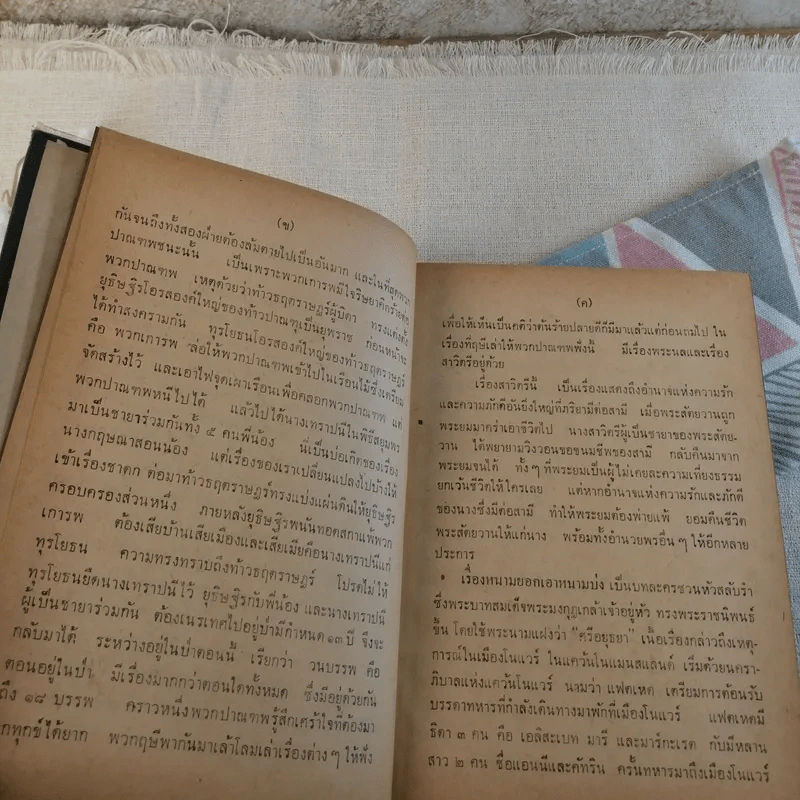 (ข)
กันจนถึงทั้งสองฝ่ายต้องล้มตายไปเป็นอันมาก และในที่สุดพวก
ปาณฑพชนะนั้น เป็นเพราะพวกเการพมีใจริษยาคิดร้ายต่อ
พวกปาณฑพ เหตุด้วยว่าท้าวธฤตราษฎร์ผู้บิดา ทรงแต่งตั้ง
ยุธิษฐิรโอรสองค์ใหญ่ของท้าวปาณฑุเป็นยุพราช ก่อนหน้าจะ
ได้ทำสงครามกัน ทุรโยธนโอรสองค์ใหญ่ของท้าวธฤตราษฎร์
คือ พวกเการพ ล่อให้พวกปาณฑพเข้าไปในเรือนไม้ซึ่งเตรียม
จัดสร้างไว้ และเอาไฟจุดเผาเรือนเพื่อคลอกพวกปาณฑพ แต่
พวกปาณฑพหนีไปได้ แล้วไปได้นางเทราปทีในพิธีสยุมพร
มาเป็นชายาร่วมกันทั้ง ๕ คนพี่น้อง นี่เป็นบ่อเกิดของเรื่อง
นางกฤษณาสอนน้อง แต่เรื่องของเราเปลี่ยนแปลงไปบ้างให้
เข้าเรื่องชาดก ต่อมาท้าวธฤตราษฎร์ทรงแบ่งแผ่นดินให้ยุธิษฐิร
ครอบครองส่วนหนึ่ง ภายหลังยุธิษฐิรพนันทอดสกาแพ้พวก
เการพ ต้องเสียบ้านเสียเมืองและเสียเมียคือนางเทราปทีแก่
ทุรโยธน ความทรงทราบถึงท้าวธฤตราษฎร์ โปรดไม่ให้
ทุรโยธนยึดนางเทราปทีไว้ ยุธิษฐิรกับพี่น้อง และนางเทราปที
ผู้เป็นชายาร่วมกัน ต้องเนรเทศไปอยู่ป่ามีกำหนด ๑๓ ปี จึงจะ
กลับมาได้ ระหว่างอยู่ในป่าตอนนี้ เรียกว่า วนบรรพ คือ
ตอนอยู่ในป่า มีเรื่องมากกว่าตอนใดทั้งหมด ซึ่งมีอยู่ด้วยกัน
ถึง ๑๘ บรรพ คราวหนึ่งพวกปาณฑพรู้สึกเศร้าใจที่ต้องมา
กทุกข์ได้ยาก พวกฤษีพากันมาเล้าโลมเล่าเรื่องต่าง ๆ ให้ฟัง
(ค)
เพื่อให้เห็นเป็นคติว่าต้นร้ายปลายดีก็มีมาแล้วแต่ก่อนถมไป ใน
เรื่องที่ฤษีเล่าให้พวกปาณฑพฟังนี้ มีเรื่องพระนลและเรื่อง
สาวิตรีอยู่ด้วย
เรื่องสาวิตรีนี้ เป็นเรื่องแสดงถึงอำนาจแห่งความรัก
และความภักดีอันยิ่งใหญ่ที่ภริยามีต่อสามี เมื่อพระสัตยวานถูก
พระยมมาคร่าเอาชีวิตไป นางสาวิตรีผู้เป็นชายาของพระสัตย-
วาน ได้พยายามวิงวอนขอชนมชีพของสามี กลับคืนมาจาก
พระยมจนได้ ทั้ง ๆ ที่พระยมเป็นผู้ไม่เคยละความเที่ยงธรรม
ยกเว้นชีวิตให้ใครเลย แต่หากอำนาจแห่งความรักและภักดี
ของนางซึ่งมีต่อสามี ทำให้พระยมต้องพ่ายแพ้ ยอมคืนชีวิต
พระสัตยวานให้แก่นาง พร้อมทั้งอำนวยพรอื่น ๆ ให้อีกหลาย
ประการ
เรื่องหนามยอกเอาหนามบ่ง เป็นบทละครชวนหัวสลับรำ
ซึ่งพระบาทสมเด็จพระมงกุฎเกล้าเจ้าอยู่หัว ทรงพระราชนิพนธ์
ขึ้น โดยใช้พระนามแฝงว่า "ศรีอยุธยา" เนื้อเรื่องกล่าวถึงเหตุ-
การณ์ในเมืองโนแวร์ ในแคว้นโนแมนสแลินด์ เริ่มด้วยนครา-
ภิบาลแห่งแคว้นโนแวร์ นามว่า แฟตเหด เตรียมการต้อนรับ
บรรดาทหารที่กำลังเดินทางมาพักที่เมืองโนแวร์ แฟตเหดมี
ธิดา ๓ คน คือ เอลิสะเบท มารี และมาร์กะเรต กับมีหลาน
สาว ๒ คน ชื่อแอนนีและคัทริน ครั้นทหารมาถึงเมืองโนแวร์